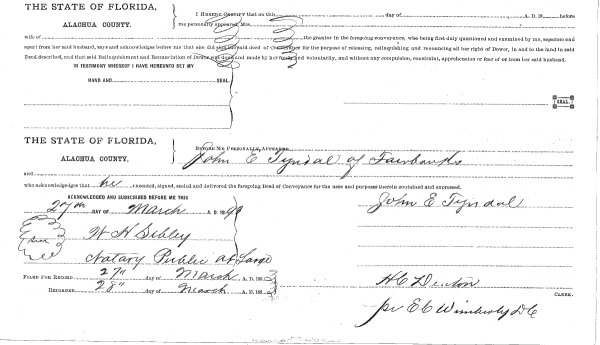 THE STATE OF FLORIDA,
ALACHUA COUNTY.
I HEREBY CERTIFY that on this day of A. D. 18 before
me personally appeared
wife of the grantor in the foregoing conveyance, who being first duly questioned and examined by me, separate and
apart from her said husband, says and acknowledges before me that she did sign the said deed of Conveyance for the purpose of releasing, relinquishing and renouncing all her right of Dower, in and to the land in said
Deed described, and that said Relinquishment and Renunciation of Dower was done and made by her freely and voluntarily, and without any compulsion, constraint, apprehension or fear of or from her said husband.
IN TESTIMONY WHEREOF I HAVE HEREUNTO SET MY
HAND AND SEAL.
SEAL.
THE STATE OF FLORIDA,
ALACHUA COUNTY.
BEFORE ME PERSONALLY APPEARED
John E Tyndal of Fairbanks
and
who acknowledges that he executed, signed, sealed and delivered the foregoing Deed of Conveyance for the uses and purposes therein contained and expressed.
ACKNOWLEDGED AND SUBSCRIBED BEFORE ME THIS
27th DAY OF March A. D. 18
John E Tyndal
Seal W H Sibley
Notary Public at Large
FILED FOR RECORD 27" day of March A. D. 18
RECORDED 28" day of March A. D. 18
H C Denton CLERK.
pr E C Wimberly D C